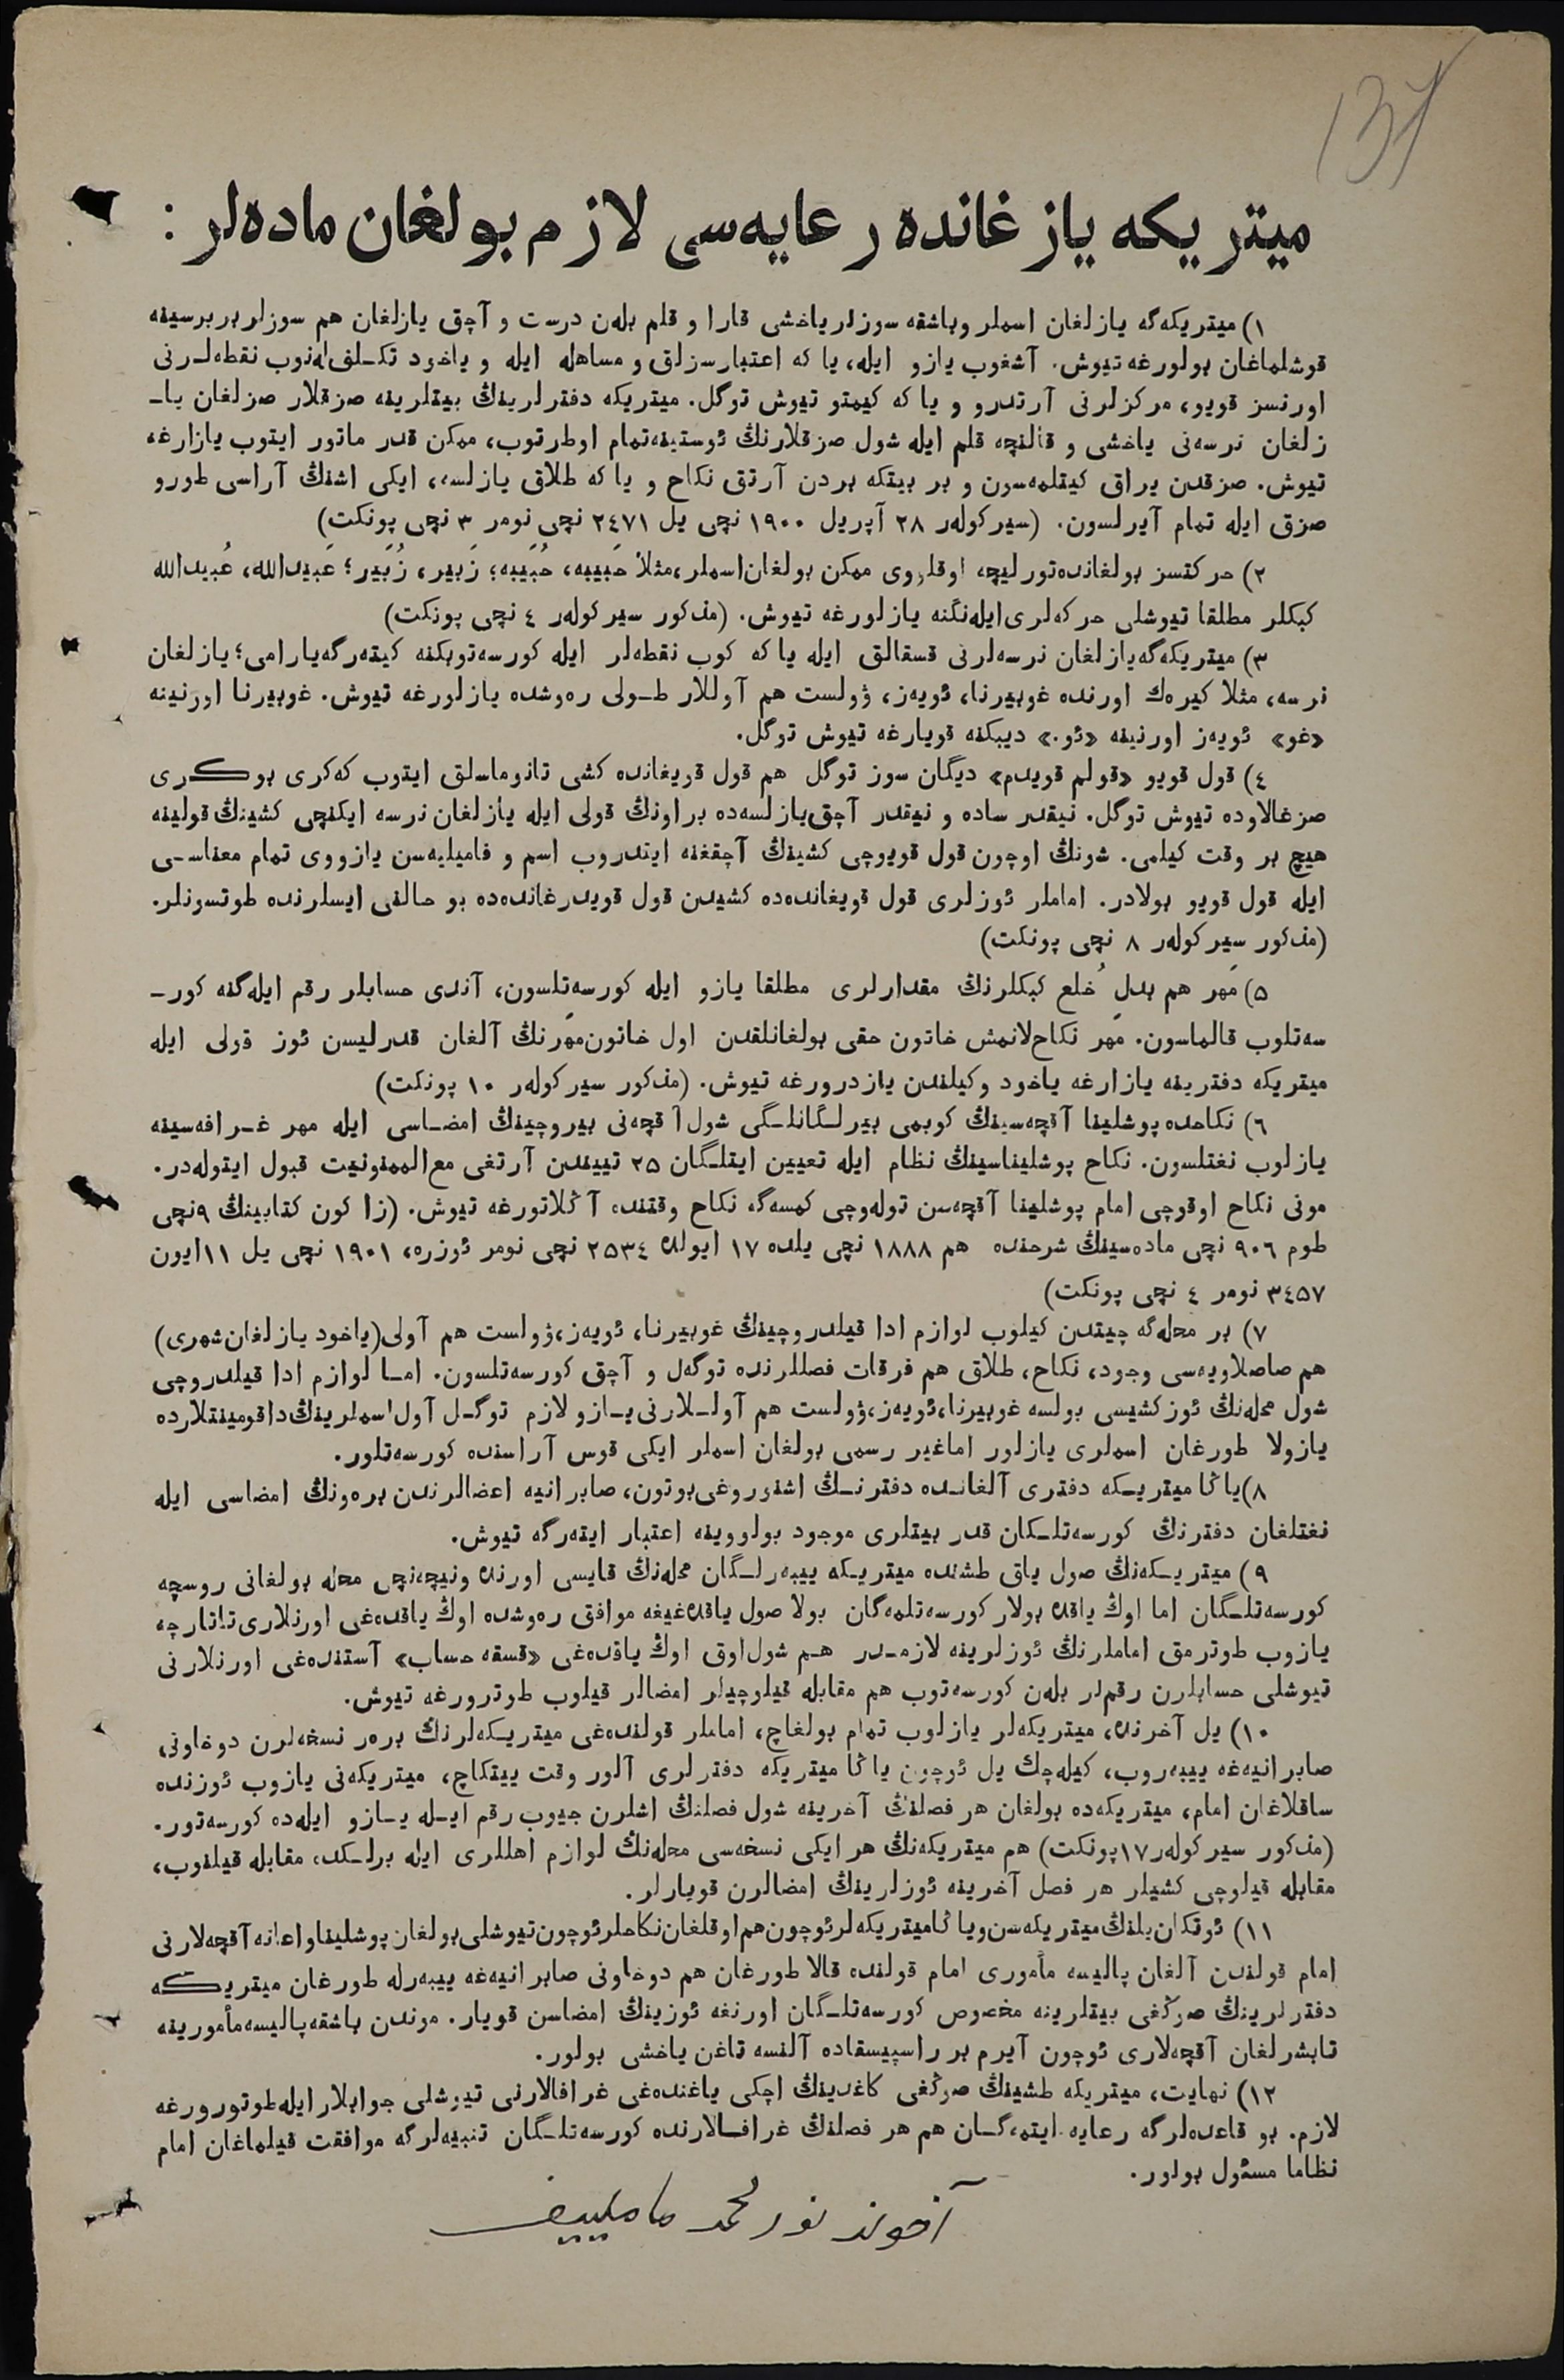 137
ميتريكه يازغانده رعايه‌سى لازم بولغان ماده‌لر :
١) ميتريكه‌گه يازلغان اسملر وباشقه سوزلر ياخشى قارا و قلم بله‌ن درست و آچق يازلغان هم سوزلر بربرسينه
قوشلماغان بولورغه تيوش. آشغوب يازو ايله، يا كه اعتبارسزلق و مساهله ايله و ياخود تكـلف له‌نوب نقطه‌لـرنى
اورنسز قويو، مركزلرنى آرتدرو و يا كه كيمتو تيوش توگل. ميتريكه دفترلرينڭ بيتلرينه صزقلار صزلغان يا۔
زلغان نرسه‌نى ياخشى و قالنچه قلم ايله شول صزقلارنڭ ئوستينه تمام اوطرتوب، ممكن قدر ماتور ايتوب يازارغه
تيوش. صزقدن يراق كيتلمه‌سون و بر بيتكه بردن آرتق نكاح و يا كه طلاق يازلسه، ايكى اشنڭ آراسى طورو
صزق ايله تمام آيرلسون. (سيركوله‌ر ٢٨ آپريل ١٩٠٠ نچى يل ٢٤٧١ نچى نومر ٣ نچى پونكت)
٢) حركتسز بولغانده تورليچه اوقلووى ممكن بولغان اسملر، مثلا حَبيبه، حُبَيبه؛ زَبير، زُبَير؛ عَبيدالله، عُبيدالله
كبكلر مطلقا تيوشلى حركه‌لرى ايله‌نگنه يازلورغه تيوش. (مذكور سيركوله‌ر ٤ نچى پونكت)
٣) ميتريكه‌گه يازلغان نرسه‌لرنى قسقالق ايله يا كه كوب نقطه‌لر ايله كورسه‌توبكنه كيته‌رگه يارامى؛ يازلغان
نرسه، مثلا كيره‌ك اورنده غوبيرنا، ئويه‌ز، ۋولست هم آوللار طـولى ره‌وشده يازلورغه تيوش. غوبيرنا اورنينه
«غو» ئويه‌ز اورنينه «ئو.» ديبكنه قويارغه تيوش توگل.
٤) قول قويو «قولم قويدم» ديگان سوز توگل هم قول قويغانده كشى تانوماسلق ايتوب كه‌كرى بوكرى
صزغالاوده تيوش توگل. نيقدر ساده و نيقدر آچق يازلسه‌ده براونڭ قولى ايله يازلغان نرسه ايكنچى كشينڭ قولينه
هيچ بر وقت كيلمى. شونڭ اوچون قول قويوچى كشينڭ آچقغنه ايتدروب اسم و فاميليه‌سن يازووى تمام معناسـى
ايله قول قويو بولادر. اماملر ئوزلرى قول قويغانده‌ده كشيدن قول قويدرغانده‌ده بو حالنى ايسلرنده طوتسونلر.
(مذكور سيركوله‌ر ٨ نچى پونكت)
٥) مَهر هم بدلِ خُلع كبكلرنڭ مقدارلرى مطلقا يازو ايله كورسه‌تلسون، آندى حسابلر رقم ايله‌گنه كور۔
سه‌تلوب قالماسون. مَهر نكاح‌لانمش خاتون حقى بولغانلقدن اول خاتون مَهرنڭ آلغان قدرليسن ئوز قولى ايله
ميتريكه دفترينه يازارغه ياخود وكيلندن يازدرورغه تيوش. (مذكور سيركوله‌ر ١٠ پونكت)
٦) نكاحده پوشلينا آقچه‌سينڭ كوبمى بيرلـگانلـگى شول آقچه‌نى بيروچينڭ امضـاسى ايله مهر غـرافه‌سينه
يازلوب نغتلسون. نكاح پوشليناسينڭ نظام ايله تعيين ايتلـگان ٢٥ تييندن آرتغى مع‌الممنونيت قبول ايتوله‌در.
مونى نكاح اوقوچى امام پوشلينا آقچه‌سن توله‌وچى كمسه‌گه نكاح وقتنده آڭلاتورغه تيوش. (زاكون كتابينڭ ٩نچى
طوم ٩٠٦ نچى ماده‌سينڭ شرحنده هم ١٨٨٨ نچى يلده ١٧ ايولده ٢٥٣٤ نچى نومر ئوزره، ١٩٠١ نچى يل ١١ ايون
٣٤٥٧ نومر ٤ نچى پونكت)
٧) بر محله‌گه چيتدن كيلوب لوازم ادا قيلدروچينڭ غوبيرنا، ئويه‌ز، ۋولست هم آولى (ياخود يازلغان شهرى)
هم صاصلاويه‌سى وجود، نكاح، طلاق هم فرقات فصللرنده توگه‌ل و آچق كورسه‌تلسون. امـا لوازم ادا قيلدروچى
شول محله‌نڭ ئوز كشيسى بولسه غوبيرنا، ئويه‌ز، ۋولست هم آولـلارنى يـازو لازم توگـل آول اسملرينڭ داقومينتلارده
يازولا طورغان اسملرى يازلور اماغير رسمى بولغان اسملر ايكى قوس آراسنده كورسه‌تلور.
٨) ياڭا ميتريـكه دفترى آلغانـده دفترنـڭ اشنوروغى بوتون، صابرانيه اعضالرندن بره‌ونڭ امضاسى ايله
نغتلغان دفترنڭ كورسه‌تلـكان قدر بيتلرى موجود بولووينه اعتبار ايته‌رگه تيوش.
٩) ميتريـكه‌نڭ صول ياق طشنده ميتريـكه ييبه‌رلـگان محله‌نڭ قايسى اورنده ونيچه‌نچى محله بولغانى روسچه
كورسه‌تلـگان اما اوڭ ياقده بولار كورسه‌تلمه‌گان بولا صول ياقده‌غيغه موافق ره‌وشده اوڭ ياقده‌غى اورنلارى تاتارچه
يازوب طوترمق اماملرنڭ ئوزلرينه لازمـدر هـم شول اوق اوڭ ياقده‌غى «قسقه حساب» آستنده‌غى اورنلارنى
تيوشلى حسابلرن رقملر بله‌ن كورسه‌توب هم مقابله قيلوچيلر امضالر قيلوب طوترورغه تيوش.
١٠) يل آخرنده، ميتريكه‌لر يازلوب تمام بولغاچ، اماملر قولنده‌غى ميتريـكه‌لرنڭ بره‌ر نسخه‌لرن دوخاونى
صابرانيه‌غه ييبه‌روب، كيله‌چك يل ئوچون ياڭا ميتريكه دفترلرى آلور وقت ييتكاچ، ميتريكه‌نى يازوب ئوزنده
ساقلاغان امام، ميتريكه‌ده بولغان هر فصلنڭ آخرينه شول فصلنڭ اشلرن جيوب رقم ايـله يـازو ايله‌ده كورسه‌تور.
(مذكور سيركوله‌ر ١٧پونكت) هم ميتريكه‌نڭ هر ايكى نسخه‌سى محله‌نڭ لوازم اهللرى ايله برلـكده مقابله قيلنوب،
مقابله قيلوچى كشيلر هر فصل آخرينه ئوزلرينڭ امضالرن قويارلر.
١١) ئوتكان يلنڭ ميتريكه‌سن وياڭا ميتريكه‌لر ئوچون هم اوقلغان نكاحلر ئوچون تيوشلى بولغان پوشلينا واعانه آقچه‌لارنى
امام قولندن آلغان پاليسه مأمورى امام قولنده قالا طورغان هم دوخاونى صابرانيه‌غه ييبه‌رله طورغان ميتريكه
دفترلرينڭ صوڭغى بيتلرينه مخصوص كورسه‌تلـگان اورنغه ئوزينڭ امضاسن قويار. موندن باشقه پاليسه مأمورينه
تابشرلغان آقچه‌لارى ئوچون آيرم بر راسپيسقاده آلنسه تاغن ياخشى بولور.
١٢) نهايت، ميتريكه طشينڭ صوڭغى كاغدينڭ اچكى ياغنده‌غى غرافالارنى تيوشلى جوابلار ايله طوتورورغه
لازم. بو قاعده‌لرگه رعايه ايتمه‌گـان هم هر فصلنڭ غرافـالارنده كورسه‌تلـگان تنبيه‌لرگه موافقت قيلماغان امام
نظاما مسئول بولور.
آخوند نورمحمد ماملييف